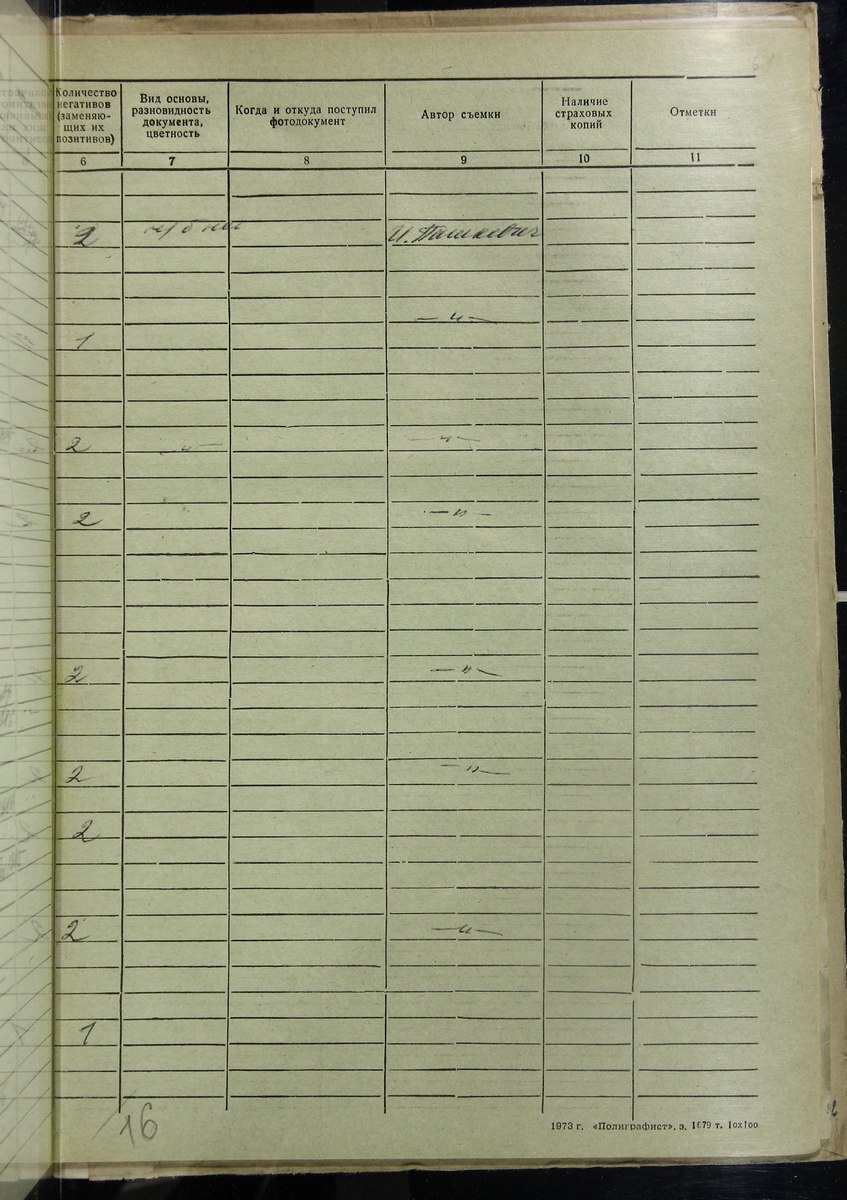 Количество негативов (заменяю- щих их позитивов)
Вид основы, разновидность документа, цветность
Когда и откуда поступил фотодокумент
Автор съемки
Наличие страховых копий
Отметки
6 7 8 9 10 11
2 ч/б нег И. Пашкевич
— „ —
1
2 — „ — — „ —
2 — „ —
2 — „ —
2 — „ —
2
2 — „ —
1
16
1973 г. «Полиграфист», з. 1679 т. 10х100